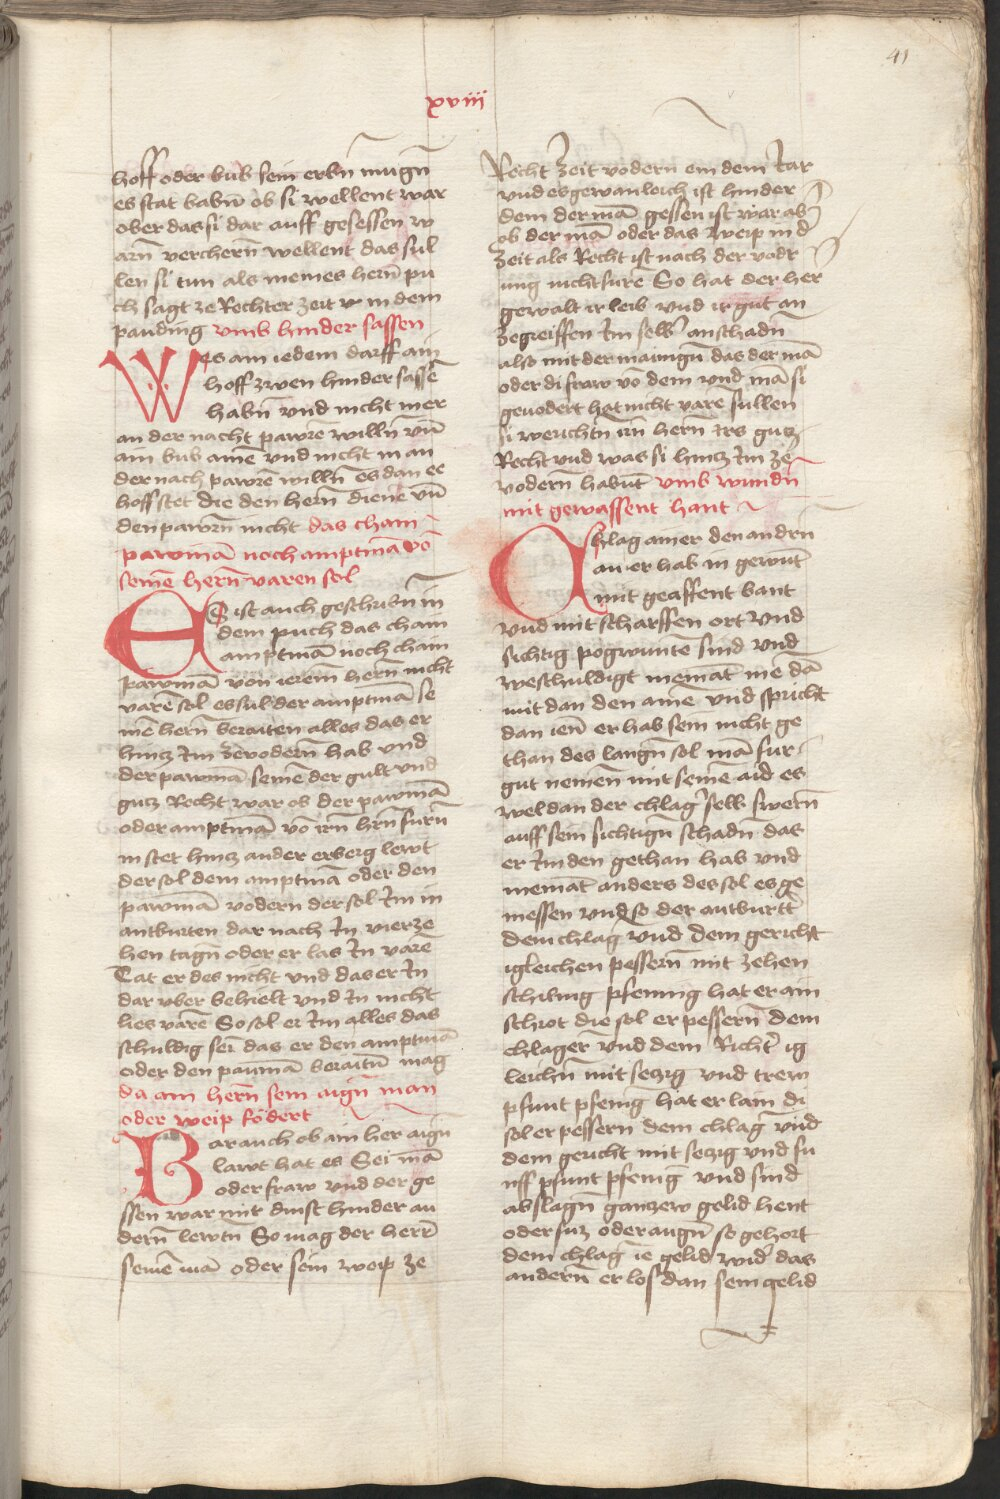 41
xviii
hoff oder hub sein erbn̄ mugn̄
es stat habn̄ ob si wellent war
ober das si dar auff gesessen w
arn̄ verchern̄ wellent das sul
len si tun als meines hern̄ pu
ch sagt ze Rechter zeit in dem
pauding vmb hinder sassen
Wes am iedem darff ain
hoff zwen hinder sassē
habn̄ vnd nicht mer
an der nacht pawrē willn̄ vn̄
ain hub ainē vnd nicht in an
der nach pawrē willn̄ es dan ee
hoff stet die den hern̄ dienē vn̄
den pawrn̄ nicht das chain
pawmā noch amptmā vō
seinē hern̄ varen sol
Es ist auch geschribn̄ in
dem puch das chain
amptmā noch chain
pawmā von ierem hern̄ nicht
varē sol es sul der amptmā se
inē hern̄ beraiten alles das er
hincz im ze vodern̄ hab vnd
der pawmā seinē der gult vnd
gutz Recht war ob der pawmā
oder amptmā vō irn̄ hrn̄ furn̄
in stet hincz ander erberg lewt
der sol dem amptmā oder den
pawmā vodern der sol im in
antburten dar nach in vierze
hen tagn̄ oder er las in varē
Tat er des nicht vnd das er in
dar vber behielt vnd in nicht
lies varē So sol er im alles das
schuldig sei das er den amptmā
oder den paumā beraitn̄ mag
da ain hern̄ sein aign̄ man
oder weip födert
Bar auch ob ain hier aign̄
lawt hat es Sei mā
oder fraw vnd der ge
ssen war mit dinst hinder an
dern̄ lewtn̄ So mag der herr̄
seinē mā oder sein weip ze
Recht zeit vodern ein dem Iar
vnd es gewanleich ist hinder
dem der mā gessen ist war ab
ob der mā oder das weip in d̓
zeit als Recht ist nach der vodr
ung nicht furē So hat der her
gewalt ir leib vnd ir gut an
zegreiffen im selb̓ an schadn̄
also mit der mainign̄ das der mā
oder di fraw vō dem vnd mā si
geuodert hat nicht varē sullen
si werichtn̄ irn̄ hern irs gutz
Recht vnd was si hincz im ze
vodern̄ habn̄t vmb wundn̄
mit gewaffent hant
Chlag ainer den andrn̄
an er hab in gewūt
mit geaffent hant
vnd mit scharffen ort vnd
sichtig pogwuntē sind vnd
weschuldigt niemāt mē dā
mit dan den ainē vnd spricht
dan ien̄ er hab sein nicht ge
than des laugn̄ sol mā fur
gut nemen̄ mit seinē aid es
wel dan der chlag̓ selb swern̄
auff sein sichtign̄ schadn̄ das
er im den gethan hab vnd
niemāt anders des sol es ge
niessen vnd so der antburtt̓
dem chlag̓ vnd dem gericht
igleichen pessern̄ mit zehen
schiling pfennig hat er ain
schrot die sol er pessern̄ dem
chlager vnd dem Richt̓ ig
leichn̄ mit seczig vnd trew
pfunt pfenig hat er lain di
sol er pessern dem chlag̓ vnd
dem gericht mit seczig vnd fu
nff pfunt pfenig̓ vnd sind
abslagn̄ ganczew gelid hent
oder fuz oder augn̄ so gehort
dem chlag̓ ie gelid wid̓ das
andern̄ er los dan sein gelid